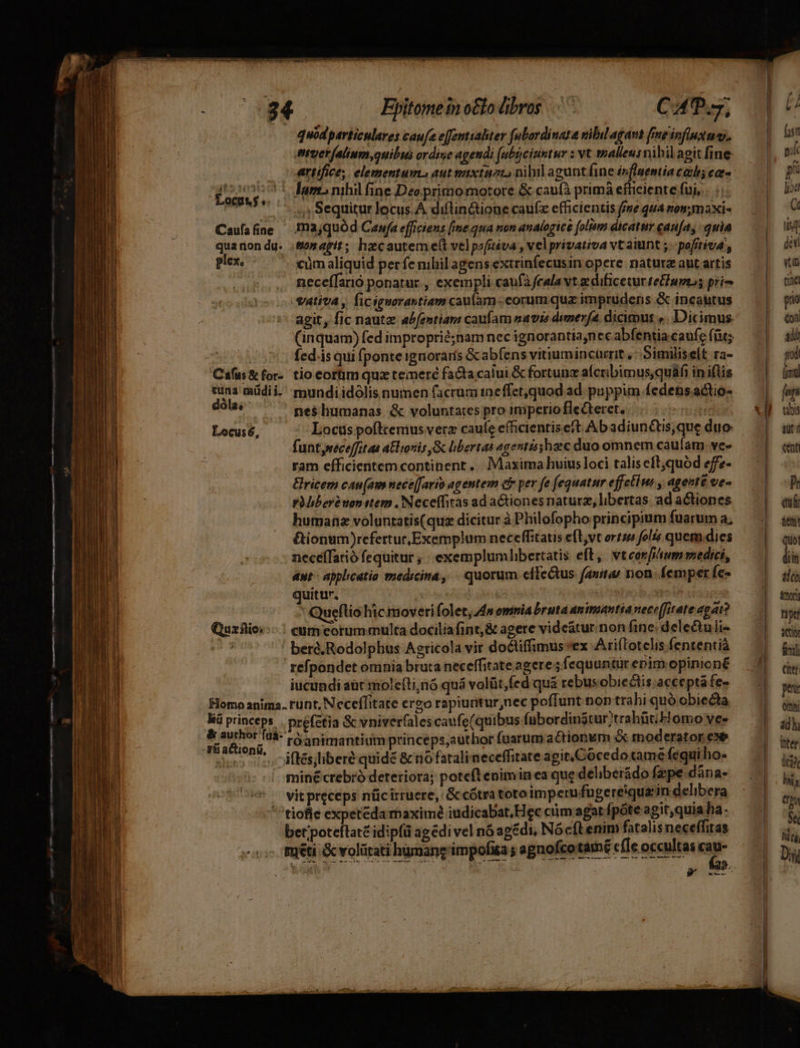 34 Epitome in octo libros CAP. 7,
quòd particulares causæ essentialiter subordinatæ nihil agant sine influxu v-
niversalium, quibus ordine agendi subijciuntur: vt malleus nihil agit sine
artifice, elementum aut mixtum nihil agunt sine influentia cœli, cœ-
Locus 5. lum nihil sine Deo primo motore & causâ primâ efficiente sui,
Sequitur locus. A distinctione causæ efficientis sine qua non; maxi-
Causa sine ma, quòd Causa efficiens sine qua non analogicè solùm dicatur causa, quia
qua non du- non agit; hæc autem est vel positiva, vel privativa vt aiunt; positiva,
plex. cùm aliquid per se nihil agens extrinsecus in opere naturæ aut artis
necessariò ponatur, exempli causâ scala vt ædificetur tectum; pri-
vativa, sic ignorantiam causam eorum quæ imprudens & incautus
agit, sic nautæ absentiam causam navis dimersæ dicimus. Dicimus
(inquam) sed impropriè; nam nec ignorantia, nec absentia causæ sūt;
sed is qui sponte ignorans & absens vitium incurrit, Similis est ra-
Casus & for- tio eorum quæ temerè facta casui & fortunæ ascribimus, quâsi in istis
tuna mūdi i- mundi idolis numen sacrum inesset, quod ad puppim sedens actio-
dola, nes humanas & voluntates pro imperio flecteret.
Locus 6, Locus postremus veræ causæ efficientis est. Ab adiunctis, que duo
sunt, necessitas actionis, & libertas agentis; hæc duo omnem causam ve-
ram efficientem continent. Maxima huius loci talis est, quòd effe-
ctricem causam necessariò agentem & per se sequatur effectus, agentē ve-
rò liberè non item. Necessitas ad actiones naturæ, libertas ad actiones
humanæ voluntatis (quæ dicitur à Philosopho principium suarum a-
ctionum) refertur. Exemplum necessitatis est, vt ortus solis quem dies
necessariò sequitur, exemplum libertatis est, vt consilium medici,
aut applicatio medicina, quorum effectus sanitas non semper se-
quitur.
Questio hic moveri solet, An omnia bruta animantia necessitate agāt?
Quæstio. cum eorum multa docilia sint, & agere videātur non sine delectu li-
berò. Rodolphus Agricola vir doctissimus ex Aristotelis sententiâ
respondet omnia bruta necessitate agere; sequuntur enim opinionē
iucundi aut molesti, nō quâ volūt, sed quâ rebus obiectis acceptâ fe-
Homo anima- runt, Necessitate ergo rapiuntur, nec possunt non trahi quò obiecta
liū princeps præsetia & vniversales causæ (quibus subordinātur) trahūt. Homo ve-
& author suā- rò animantium princeps, author suarum actionum & moderator ex-
rū actionū, istēs, liberè quidē & nō fatali necessitate agit. Cōcedo tamē sequi ho-
minē crebrò deteriora; potest enim in ea que deliberādo sæpe dāna-
vit præceps nūc irruere, & cōtra toto imperu fugere quæ in delibera
tiōe expetēda maximè iudicabat. Hęc cùm agat spōte agit, quia ha-
bet potestatē id ipsū agēdi vel nō agēdi, Nō est enim fatalis necessitas
mēti & volūtati humanę imposita; agnosco tamē esse occultas cau-
sas.